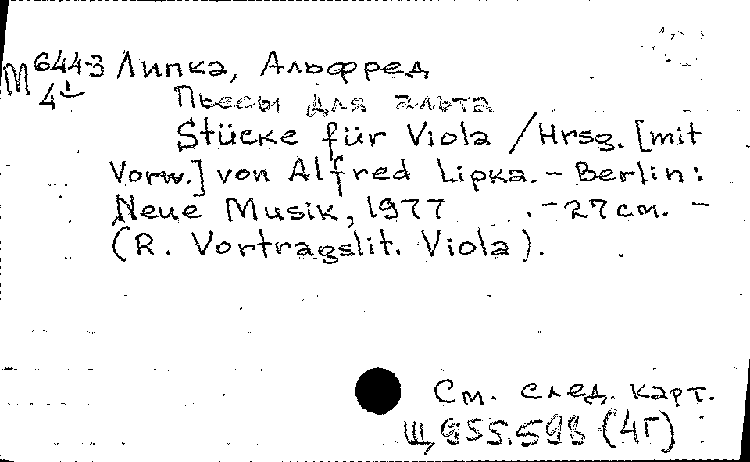 М 644-3 Липка, Альфред
4¹ Пьесы для альта
Stücke für Viola / Hrsg. [mit
Vorw.] von Alfred Lipka. – Berlin:
Neue Musik, 1977 . – 27 см. –
(R. Vortragslit. Viola).
См. след. карт.
Щ955.598 (4Г)